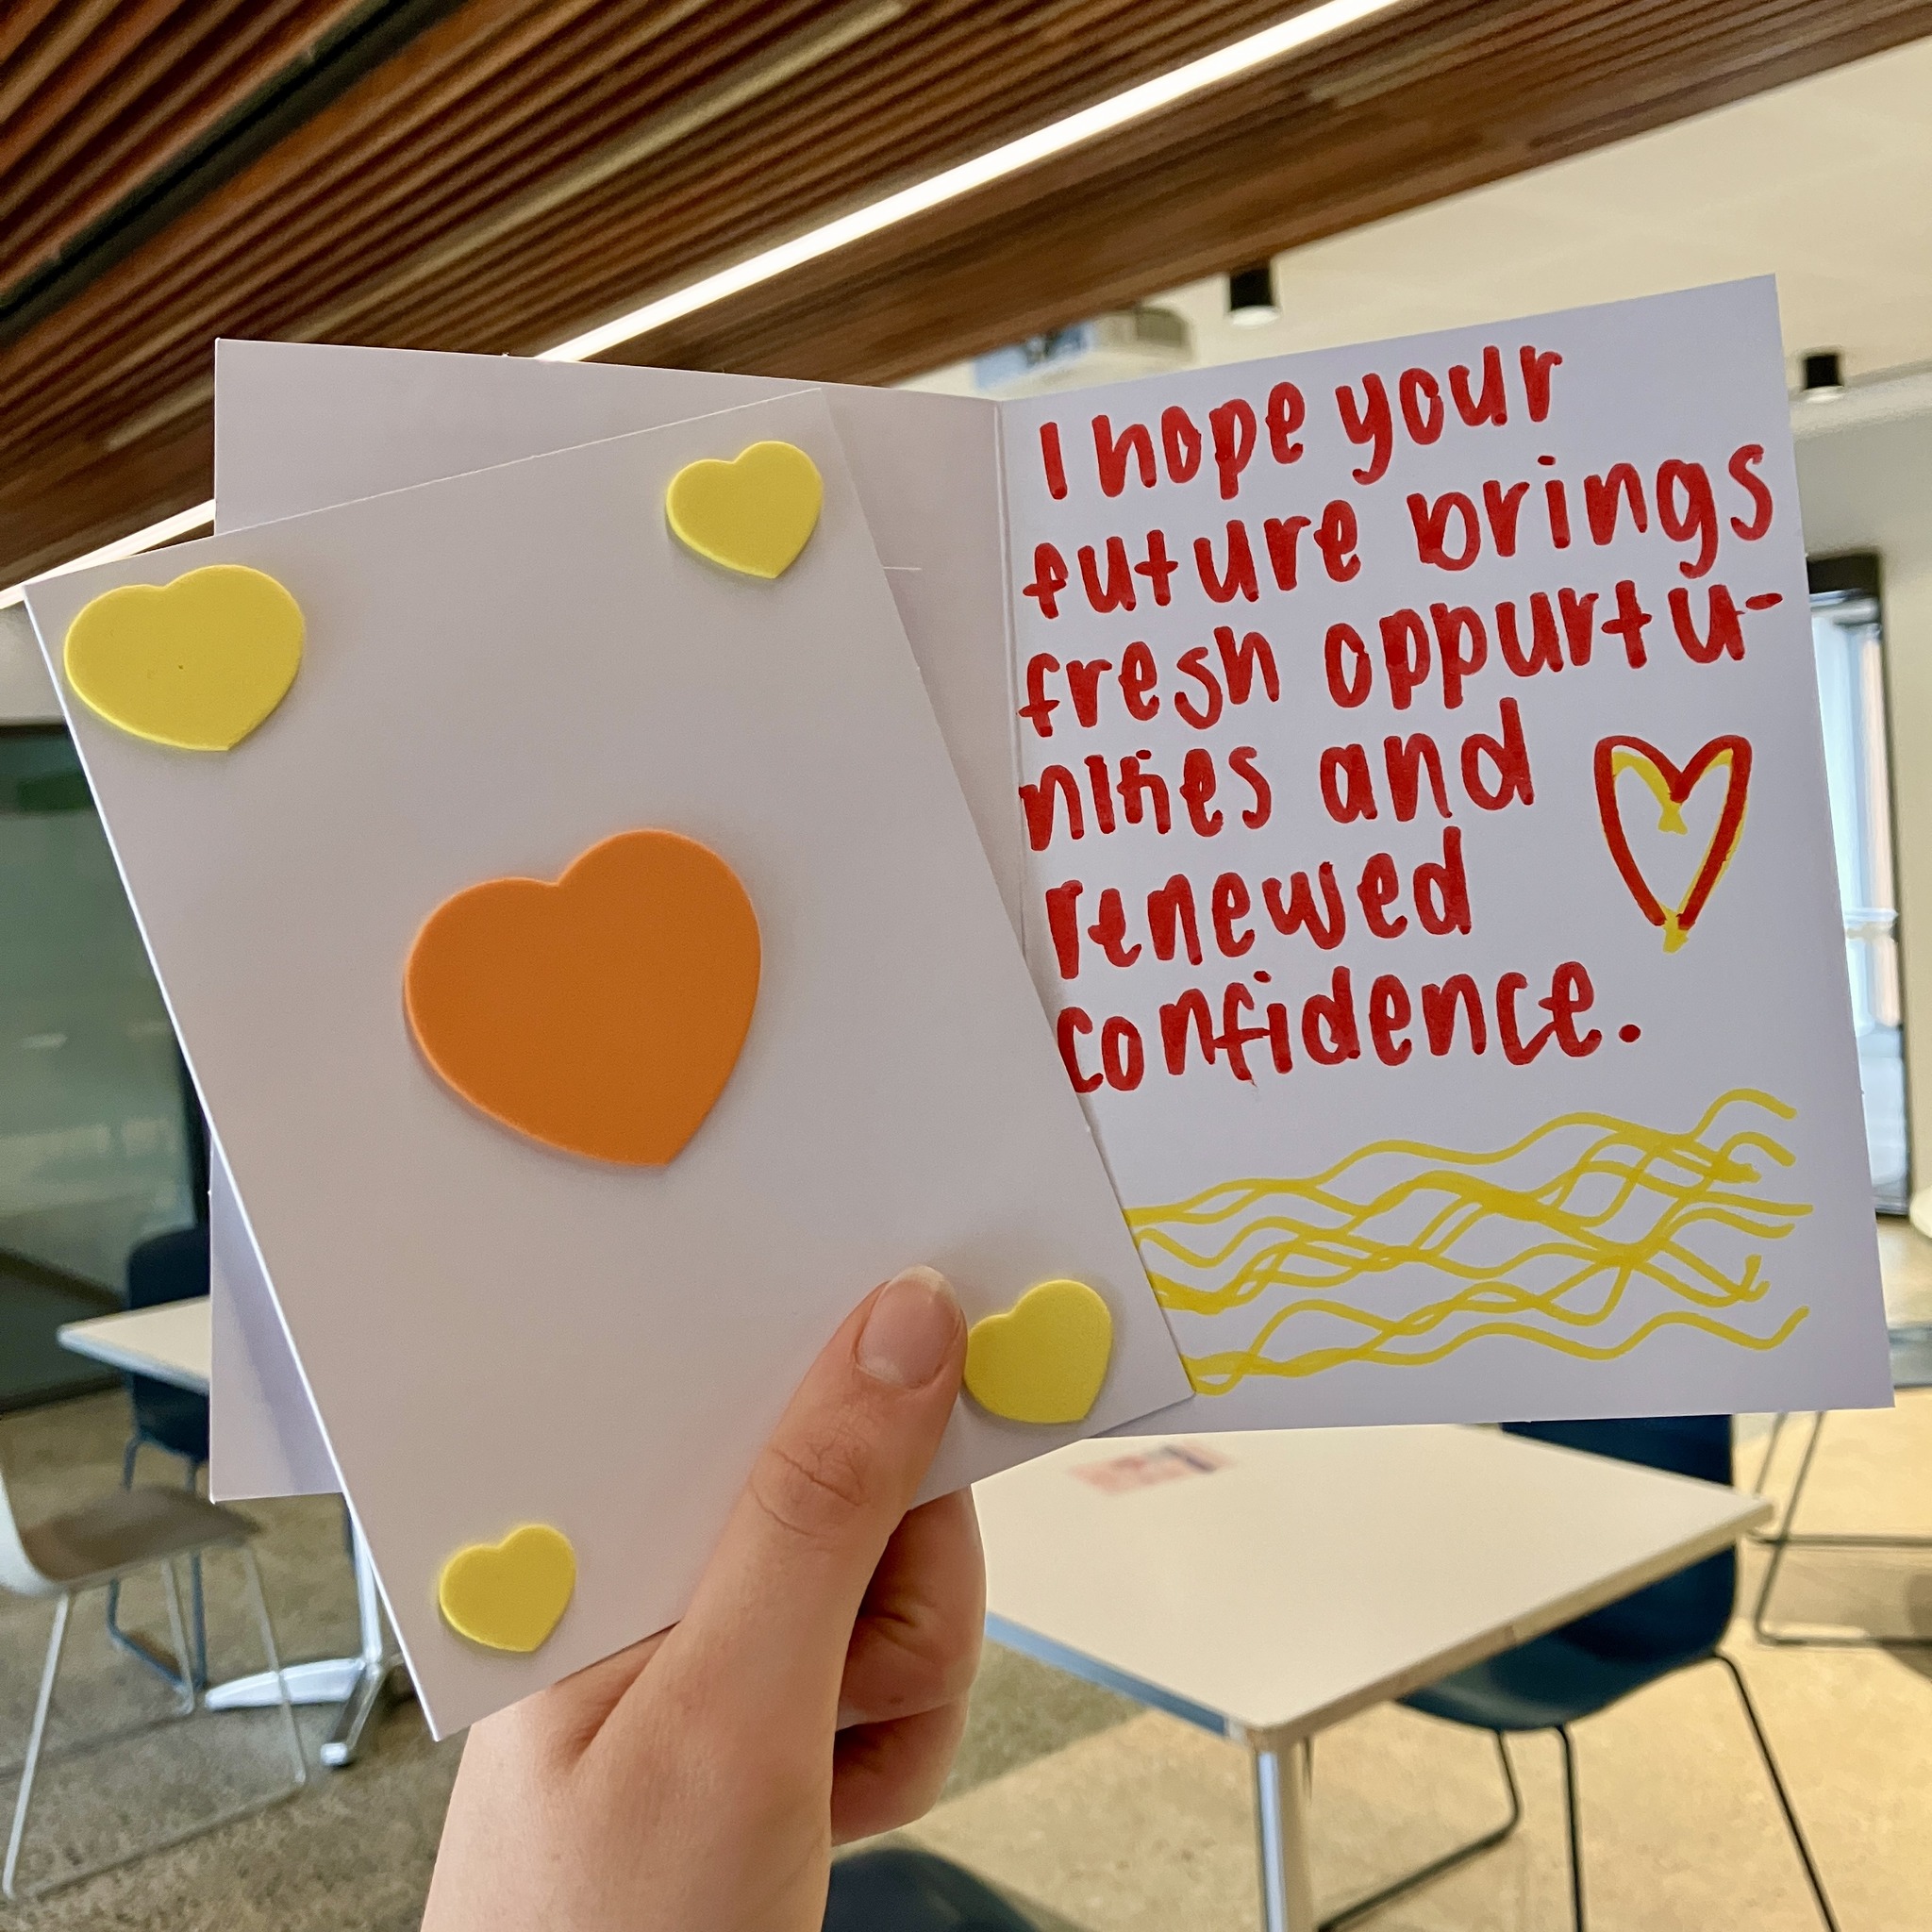 I hope your
future brings
fresh oppurtu-
nities and
renewed
confidence.